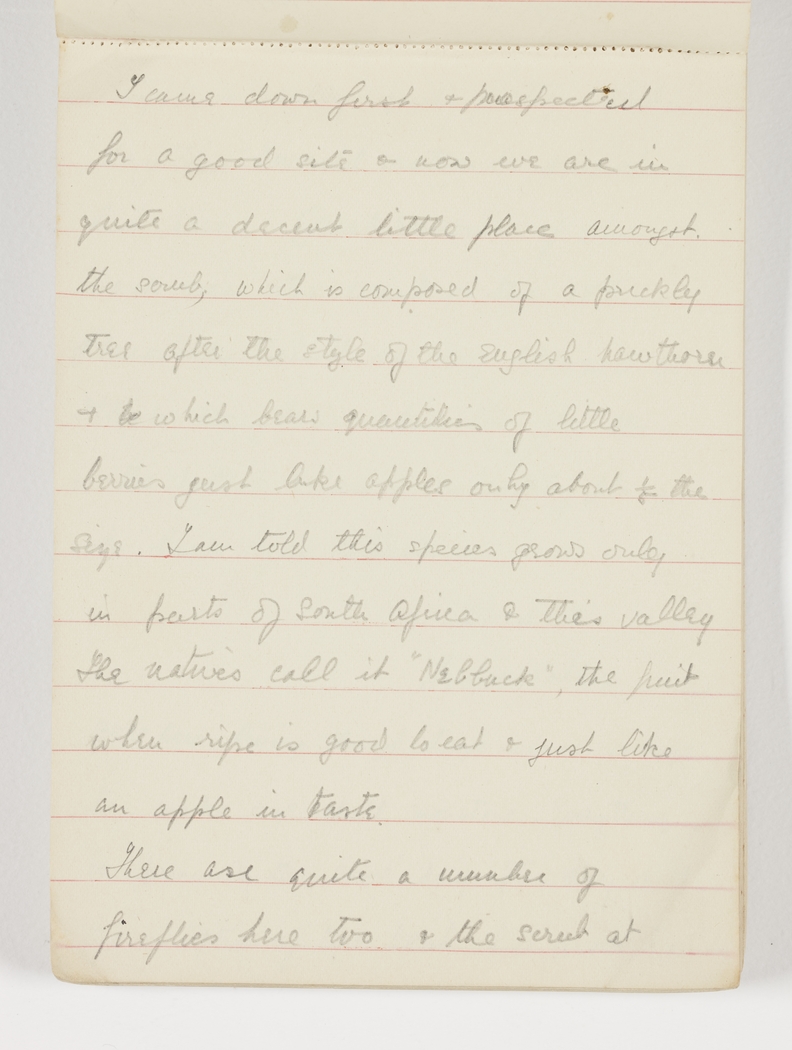 I came down first & prospected
for a good site & now we are in
quite a decent little place amongst.
the scrub, which is composed of a prickly
tree after the style of the English hawthorn
& which bears quantities of little
berries just like apples only about the
size. I am told this species grows only
in parts of South Africa & this valley
The natives call it "Nebbuck", the fruit
when ripe is good to eat & just like
an apple in taste.
There are quite a number of
fireflies here too & the scrub at